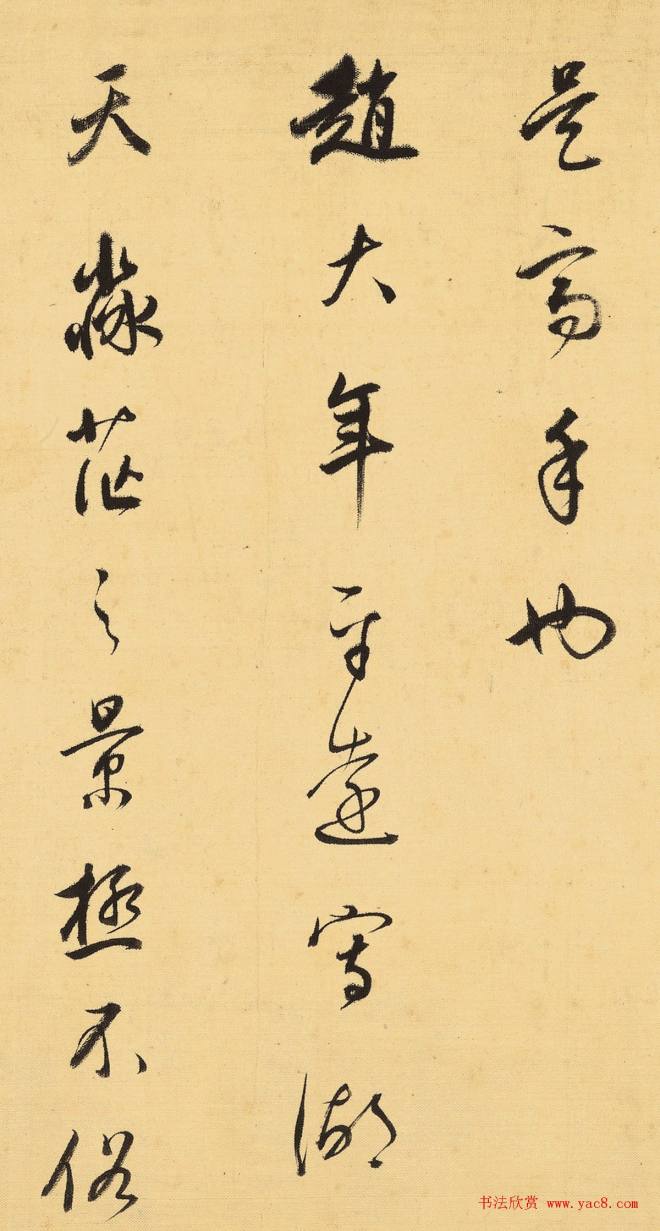 是高手也
趙大年平遠寫湖
天淼茫之景極不俗
书法欣赏 www.yac8.com